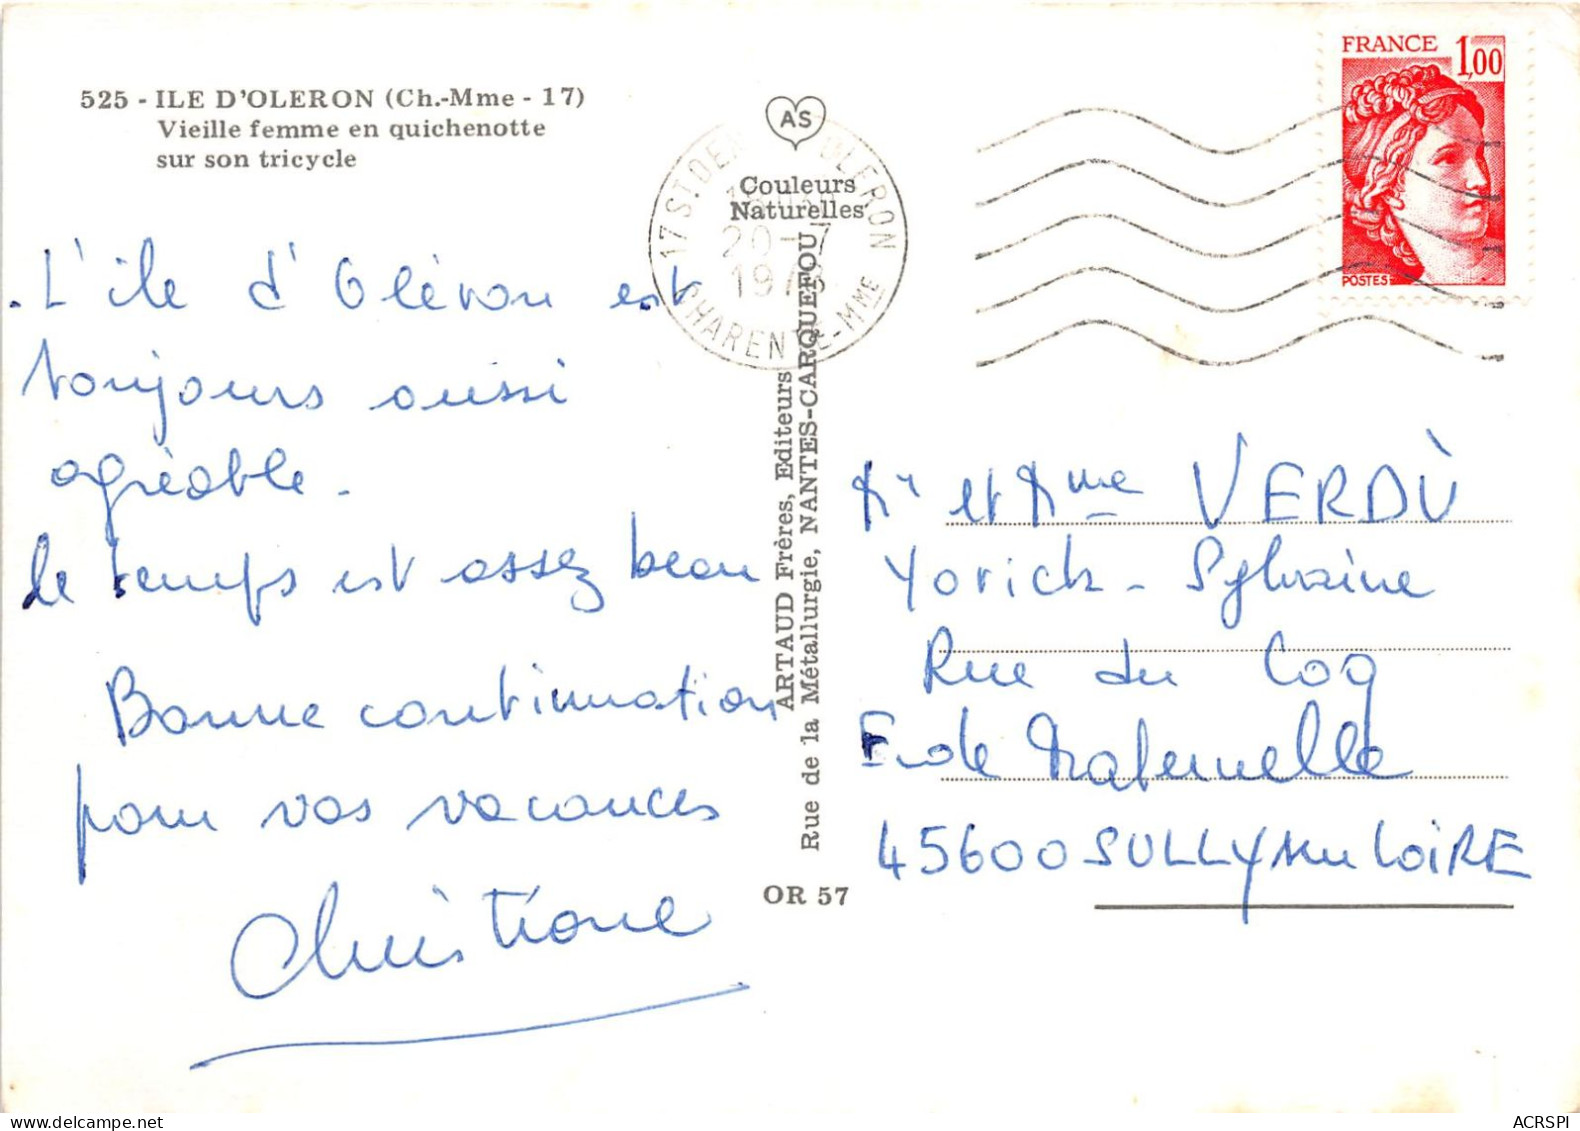 525 - ILE D'OLERON (Ch.-Mme - 17)
Vieille femme en quichenotte
sur son tricycle
AS
Couleurs
Naturelles
17 ST DEN OLERON
20-7
1978
CHARENTE-MME
FRANCE 1,00
POSTES
L'île d'Oléron est
toujours aussi
agréable.
le temps est assez beau
Bonne continuation
pour vos vacances
Christiane
ARTAUD Frères, Editeurs
Rue de la Métallurgie, NANTES-CARQUEFOU
OR 57
Mr et Mme VERDÙ
Yorick - Sylvaine
Rue du Coq
Ecole Maternelle
45600 SULLY sur LOIRE
ACRSPI